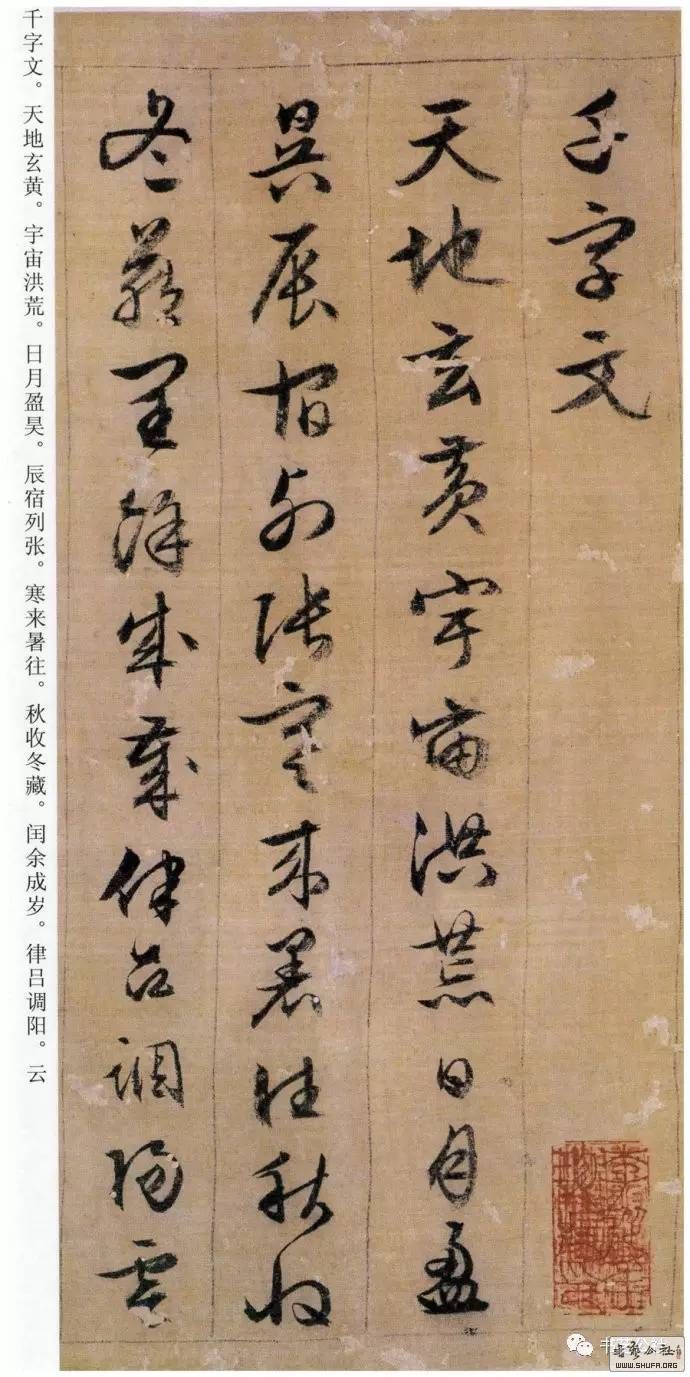 千字文
天地玄黃宇宙洪荒日月盈
昃辰宿列張寒來暑往秋收
冬藏閏餘成歲律呂調陽雲
千字文。天地玄黄。宇宙洪荒。日月盈昊。辰宿列张。寒来暑往。秋收冬藏。闰余成岁。律吕调阳。云
书艺公社
書藝公社
WWW.SHUFA.ORG